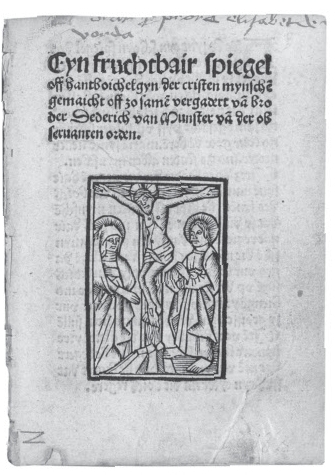 vorda
Eyn fruchtbair spiegel
off hantboichelgyn der cristen mynschē
gemaicht off zo samē vergadert vā Bro
der Dederich van Munster vā der ob
seruanten orden.